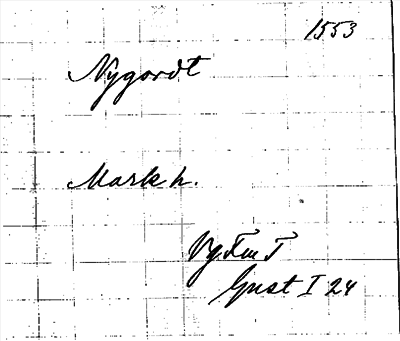 1553
Nygordt
Markh.
Vg Fm T
Gust I 24